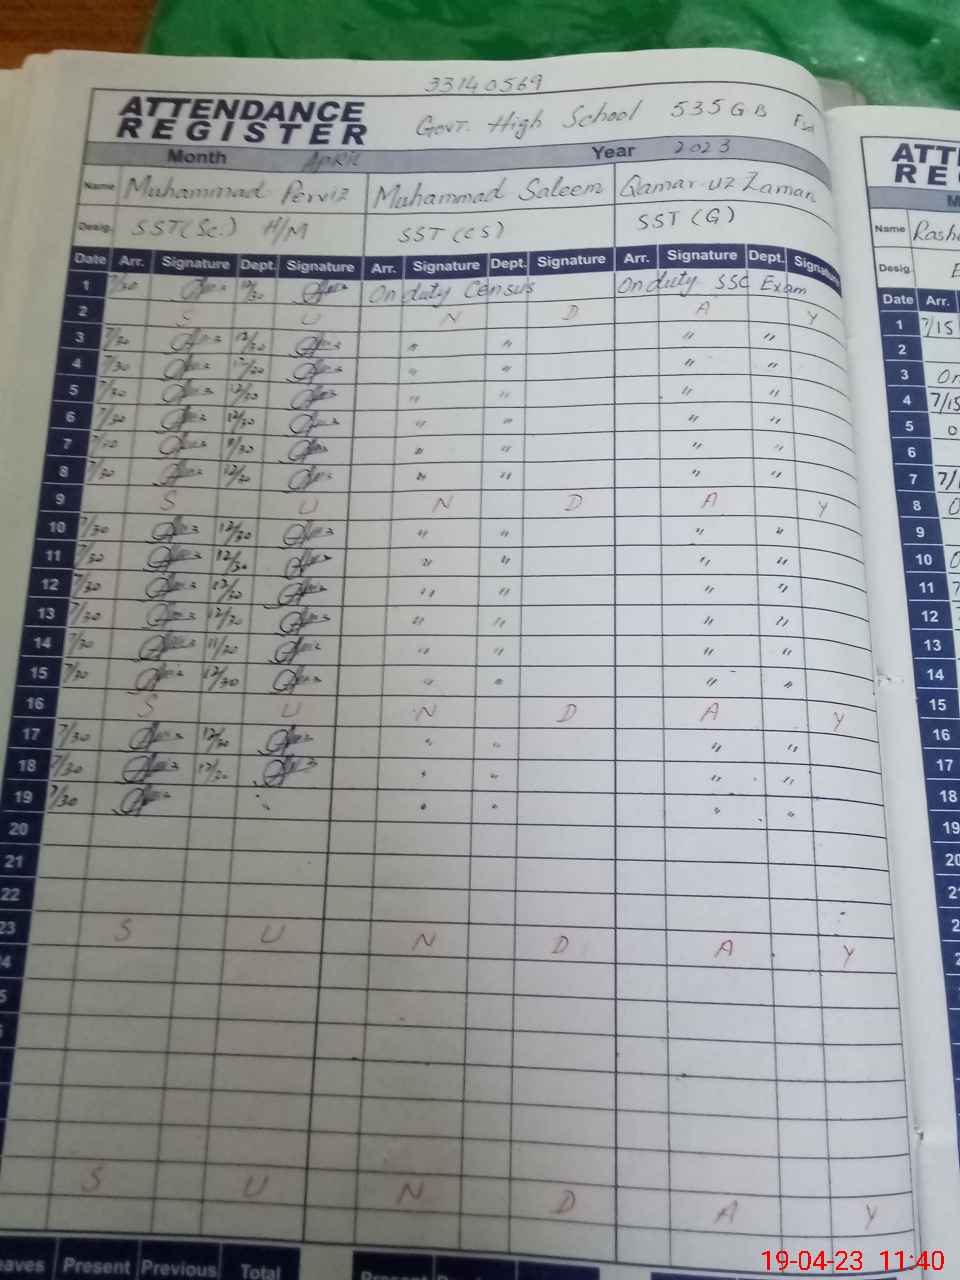 33140569
ATTENDANCE REGISTER Govt. High School 535 GB Fsd
Month April Year 2023
Name Muhammad Perviz Muhammad Saleem Qamar-uz Zaman
Desig. SST (Sc.) H/M SST (CS) SST (G)
Date Arr. Signature Dept. Signature Arr. Signature Dept. Signature Arr. Signature Dept. Signature
1 7/30 12/30 On duty Census On duty SSC Exam
2 S U N D A Y
3 7/30 12/30 " " " "
4 7/30 12/30 " " " "
5 7/30 12/30 " " " "
6 7/30 12/30 " " " "
7 7/30 11/30 " " " "
8 7/30 12/30 " " " "
9 S U N D A Y
10 7/30 12/30 " " " "
11 7/30 12/30 " " " "
12 7/30 12/30 " " " "
13 7/30 12/30 " " " "
14 7/30 11/30 " " " "
15 7/30 12/30 " " " "
16 S U N D A Y
17 7/30 12/30 " " " "
18 7/30 12/30 " " " "
19 7/30 " " " "
20
21
22
23 S U N D A Y
S U N D A Y
Present Previous Total
ATT
RE
Name Rash
Desig.
Date Arr.
1 7/15
2
3 On
4 7/15
5 O
6
7 7/1
8 O
9
10 O
11 7
12
13
14
15
16
17
18
19
20
19-04-23 11:40